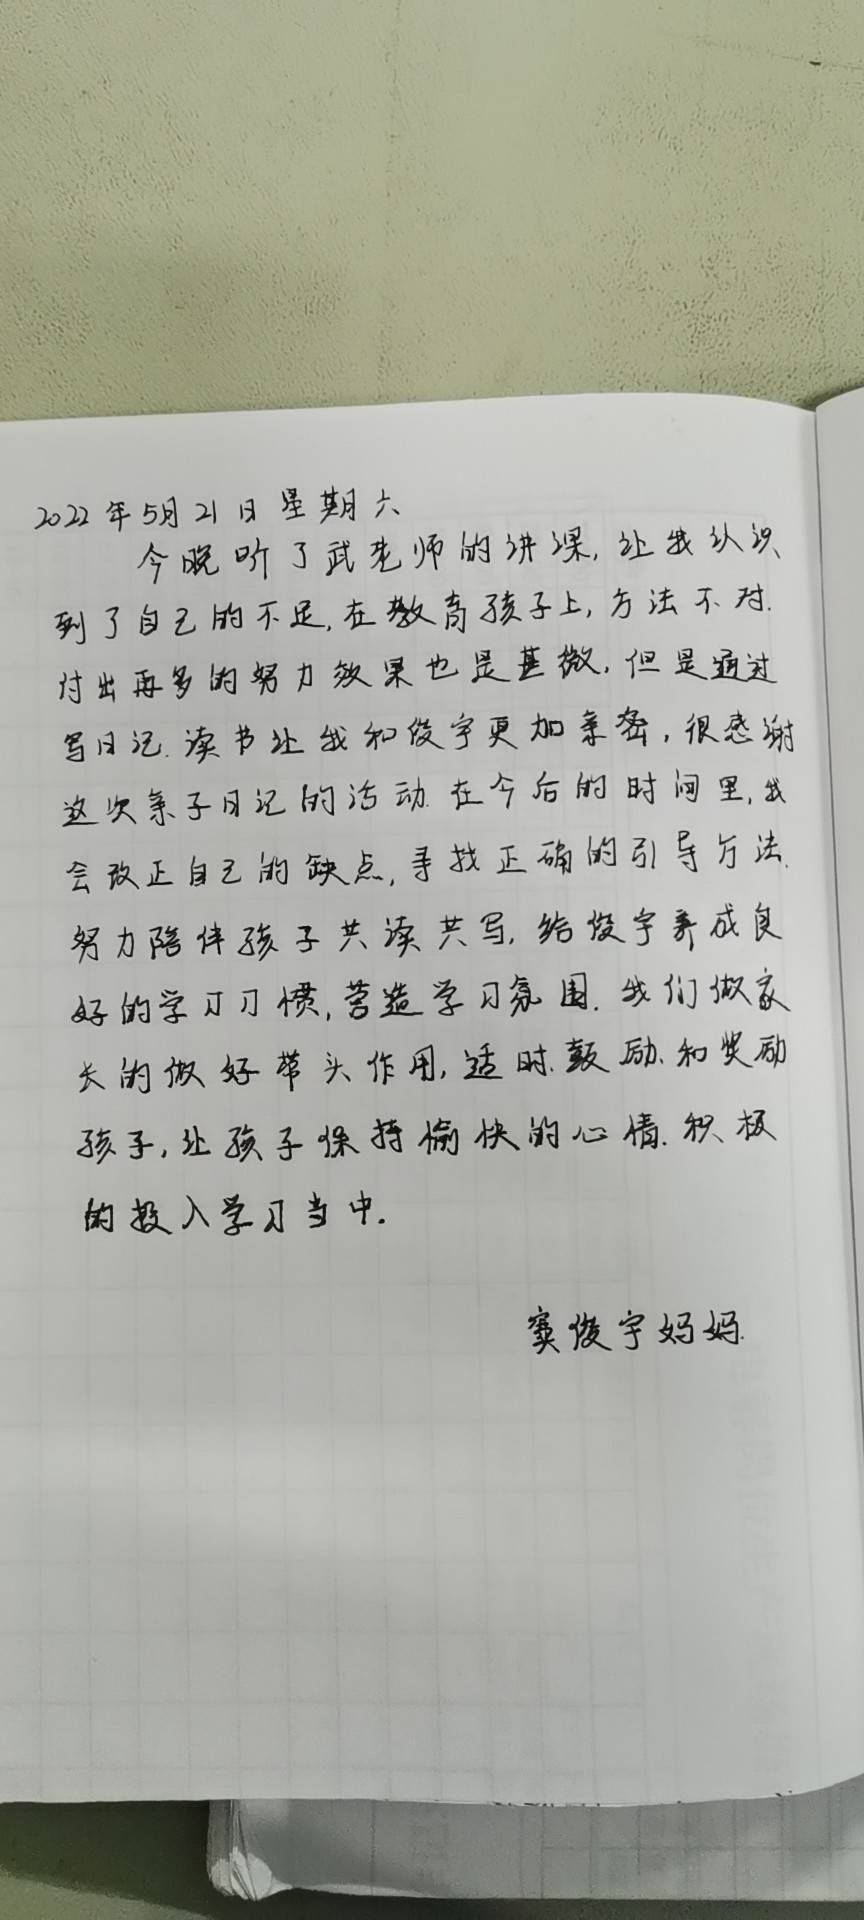 2022年5月21日星期六
今晚听了武老师的讲课,让我认识
到了自己的不足,在教育孩子上,方法不对.
付出再多的努力效果也是甚微,但是通过
写日记.读书让我和俊宇更加亲密,很感谢
这次亲子日记的活动.在今后的时间里,我
会改正自己的缺点,寻找正确的引导方法.
努力陪伴孩子共读共写,给俊宇养成良
好的学习习惯,营造学习氛围.我们做家
长的做好带头作用,适时.鼓励.和奖励
孩子,让孩子保持愉快的心情.积极
的投入学习当中.
窦俊宇妈妈.